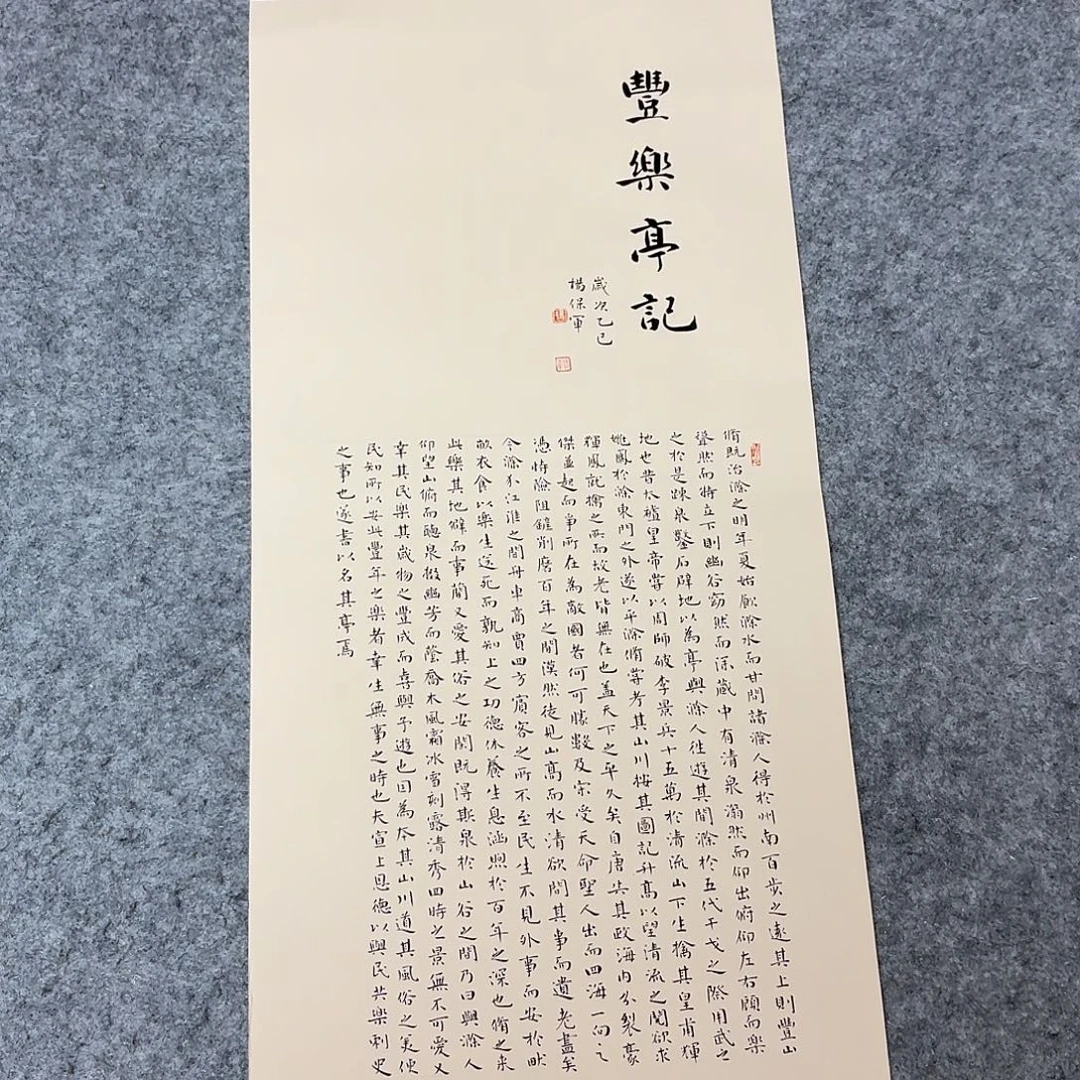 豐樂亭記
歲次乙巳
楊保軍
脩既治滁之明年夏始飲滁水而甘問諸滁人得於州南百步之遠其上則豐山
聳然而特立下則幽谷窈然而深藏中有清泉滃然而仰出俯仰左右顧而樂
之於是疎泉鑿石辟地以為亭與滁人往遊其間滁於五代干戈之際用武之
地也昔太祖皇帝嘗以周師破李景兵十五萬於清流山下生擒其皇甫輝
姚鳳於滁東門之外遂以平滁脩嘗考其山川按其圖記升高以望清流之關欲求
輝鳳就擒之所而故老皆無在也蓋天下之平久矣自唐失其政海內分裂豪
傑並起而爭所在為敵國者何可勝數及宋受天命聖人出而四海一向之
憑恃險阻鏟削磨百年之間漠然徒見山高而水清欲問其事而遺老盡矣
今滁介江淮之間舟車商賈四方賓客之所不至民生不見外事而安於畎
畝衣食以樂生送死而孰知上之功德休養生息涵煦於百年之深也脩之來
此樂其地僻而事簡又愛其俗之安閑既得斯泉於山谷之間乃日與滁人
仰望山俯而聽泉掇幽芳而蔭喬木風霜冰雪刻露清秀四時之景無不可愛又
幸其民樂其歲物之豐成而喜與予遊也因為本其山川道其風俗之美使
民知所以安此豐年之樂者幸生無事之時也夫宣上恩德以與民共樂刺史
之事也遂書以名其亭焉